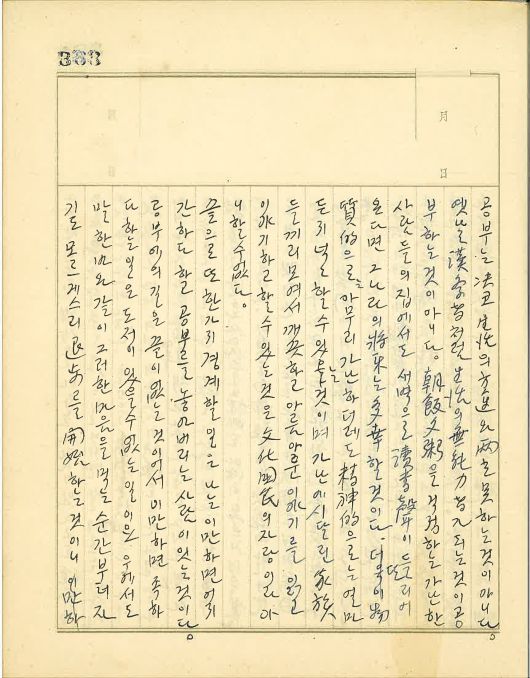 383
月
日
공부는 決코 生活의 方途와 両立 못하는 것이 아니다
옛날 漢学者 적현 生活의 無能力者 가 되는 것이 공
부하는 것이 아니다. 朝飯夕粥을 걱정하는 가난한
사람들의 집에서도 새벽으로 讀書聲이 들리어
온다면 그 나라의 將来는 多幸할 것이다. 더욱이 物
質的으로는 아무리 가난하더래도 精神的으로는 얼마
든지 넉넉할 수 있을 것이며 가난에 시달린 家族
들끼리 모여서 깨끗하고 아름다운 이야기를 읽고
이야기하고 할 수 있는 것은 文化国民의 자랑이라 아
니할 수 없다.
끝으로 또 한가지 경계할 일은 나는 이만하면 어지
간하다 하고 공부를 놓아버리는 사람이 있는 것이다
공부에의 길은 끝이 없는 것이어서 이만하면 족하
다 하는 일은 도저이 있을 수 없는 일이요 우에서도
말한 바와 같이 그러한 마음을 먹는 순간부터 자
기도 모르게스리 退步를 開始하는 것이니 이만하